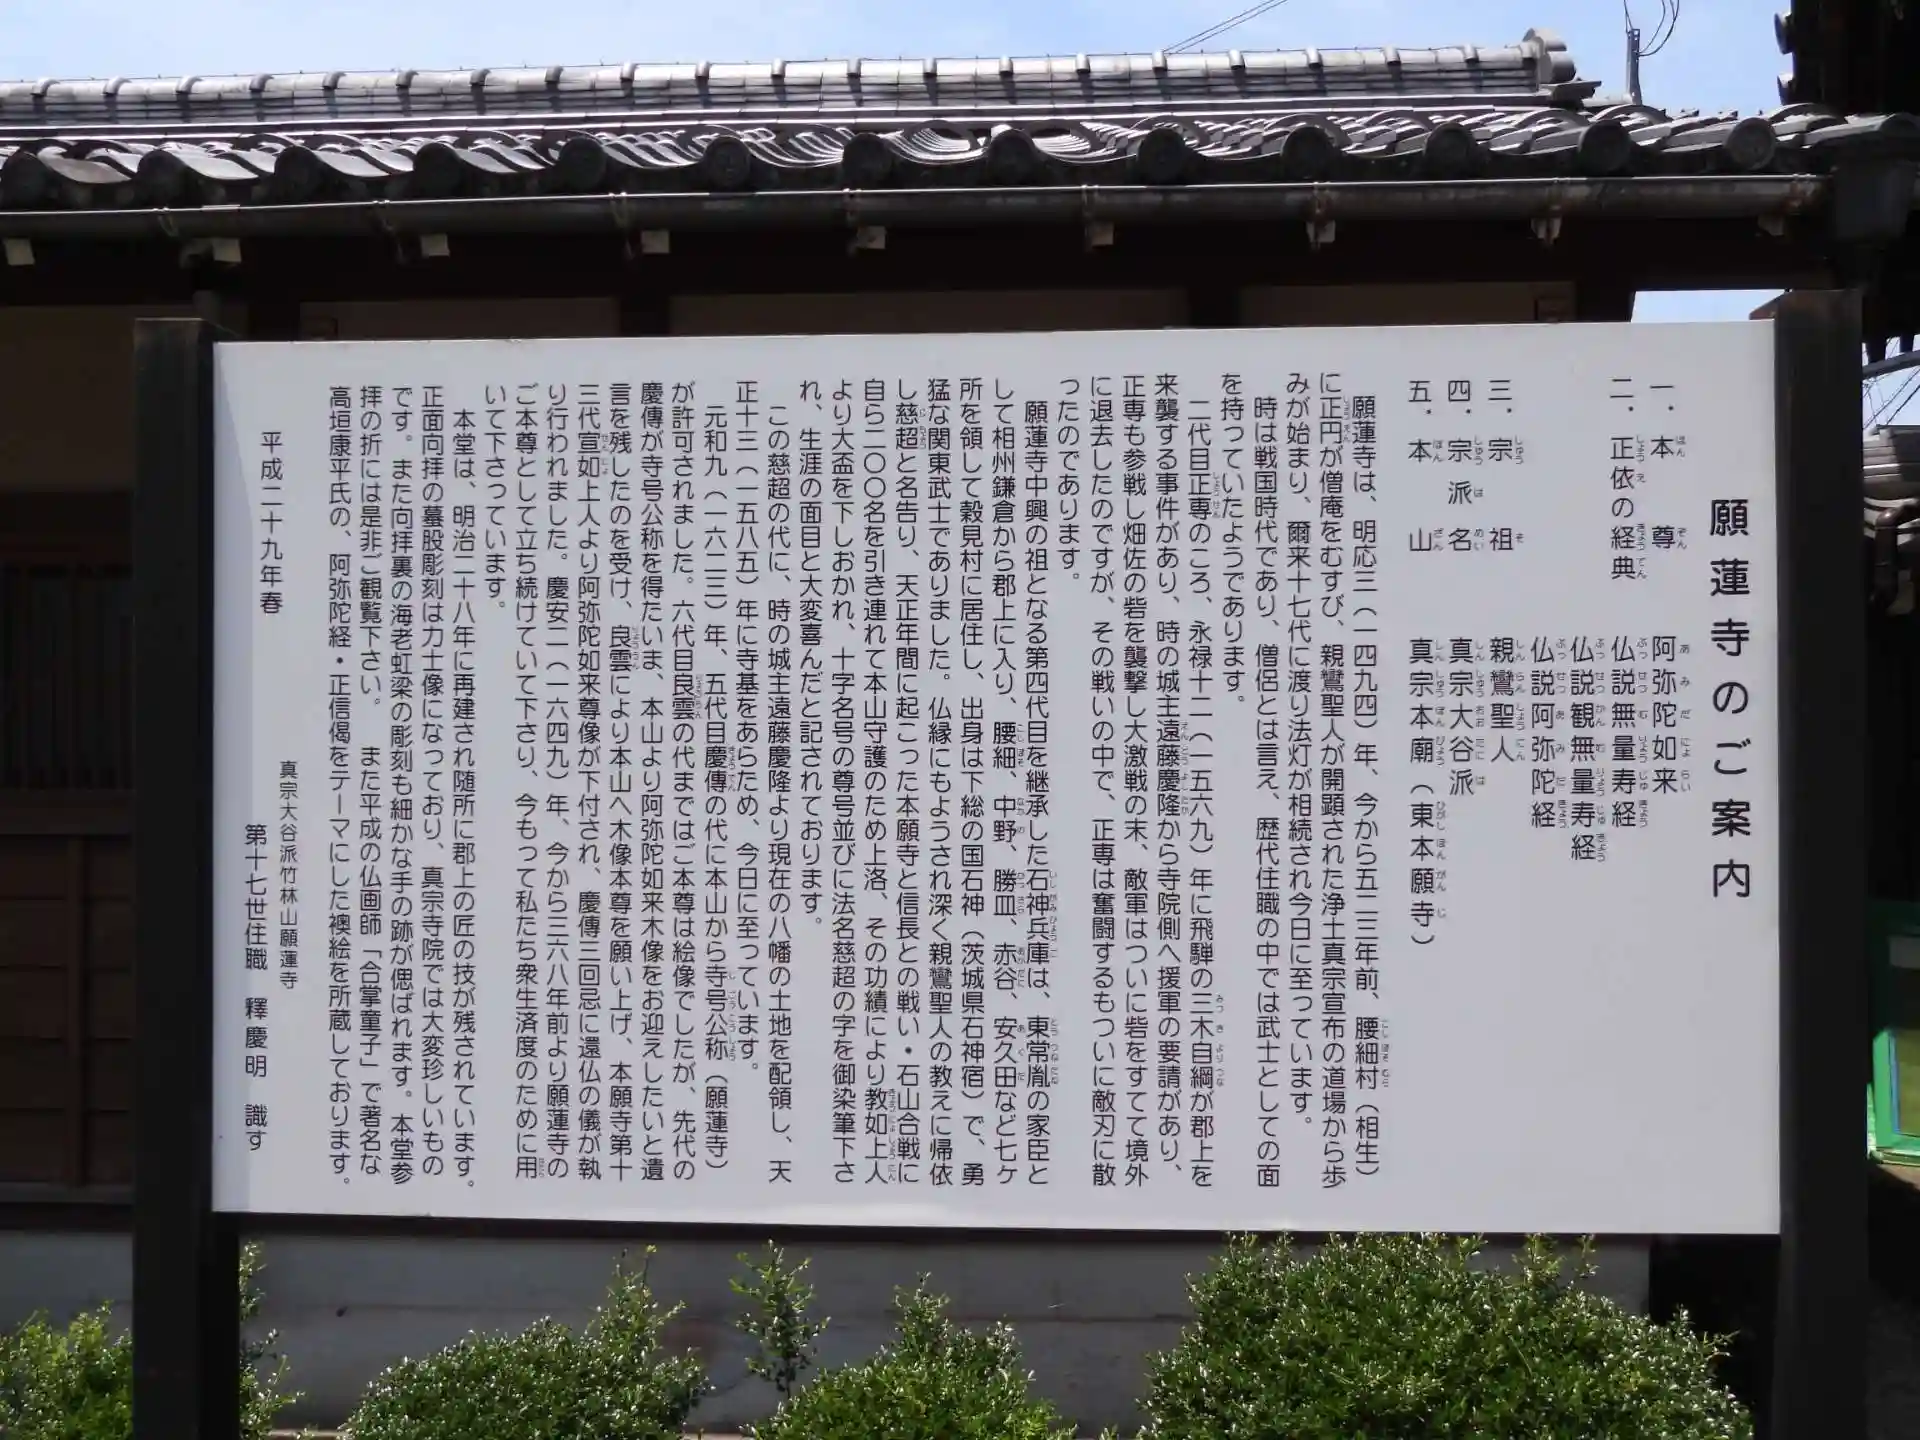 願蓮寺のご案内
一．本尊　阿弥陀如来
二．正依の経典　仏説無量寿経
仏説観無量寿経
仏説阿弥陀経
三．宗祖　親鸞聖人
四．宗派名　真宗大谷派
五．本山　真宗本廟（東本願寺）
願蓮寺は、明応三（一四九四）年、今から五二三年前、腰細村（相生）
に正円が僧庵をむすび、親鸞聖人が開顕された浄土真宗宣布の道場から歩
みが始まり、爾来十七代に渡り法灯が相続され今日に至っています。
時は戦国時代であり、僧侶とは言え、歴代住職の中では武士としての面
を持っていたようであります。
二代目正専のころ、永禄十二（一五六九）年に飛騨の三木自綱が郡上を
来襲する事件があり、時の城主遠藤慶隆から寺院側へ援軍の要請があり、
正専も参戦し畑佐の砦を襲撃し大激戦の末、敵軍はついに砦をすてて境外
に退去したのですが、その戦いの中で、正専は奮闘するもついに敵刃に散
ったのであります。
願蓮寺中興の祖となる第四代目を継承した石神兵庫は、東常胤の家臣と
して相州鎌倉から郡上に入り、腰細、中野、勝皿、赤谷、安久田など七ヶ
所を領して穀見村に居住し、出身は下総の国石神（茨城県石神宿）で、勇
猛な関東武士でありました。仏縁にもようされ深く親鸞聖人の教えに帰依
し慈超と名告り、天正年間に起こった本願寺と信長との戦い・石山合戦に
自ら二〇〇名を引き連れて本山守護のため上洛、その功績により教如上人
より大盃を下しおかれ、十字名号の尊号並びに法名慈超の字を御染筆下さ
れ、生涯の面目と大変喜んだと記されております。
この慈超の代に、時の城主遠藤慶隆より現在の八幡の土地を配領し、天
正十三（一五八五）年に寺基をあらため、今日に至っています。
元和九（一六二三）年、五代目慶傳の代に本山から寺号公称（願蓮寺）
が許可されました。六代目良雲の代まではご本尊は絵像でしたが、先代の
慶傳が寺号公称を得たいま、本山より阿弥陀如来木像をお迎えしたいと遺
言を残したのを受け、良雲により本山へ木像本尊を願い上げ、本願寺第十
三代宣如上人より阿弥陀如来尊像が下付され、慶傳三回忌に還仏の儀が執
り行われました。慶安二（一六四九）年、今から三六八年前より願蓮寺の
ご本尊として立ち続けていて下さり、今もって私たち衆生済度のために用
いて下さっています。
本堂は、明治二十八年に再建され随所に郡上の匠の技が残されています。
正面向拝の蟇股彫刻は力士像になっており、真宗寺院では大変珍しいもの
です。また向拝裏の海老虹梁の彫刻も細かな手の跡が偲ばれます。本堂参
拝の折には是非ご観覧下さい。　また平成の仏画師「合掌童子」で著名な
高垣康平氏の、阿弥陀経・正信偈をテーマにした襖絵を所蔵しております。
平成二十九年春
真宗大谷派竹林山願蓮寺
第十七世住職　釋慶明　識す